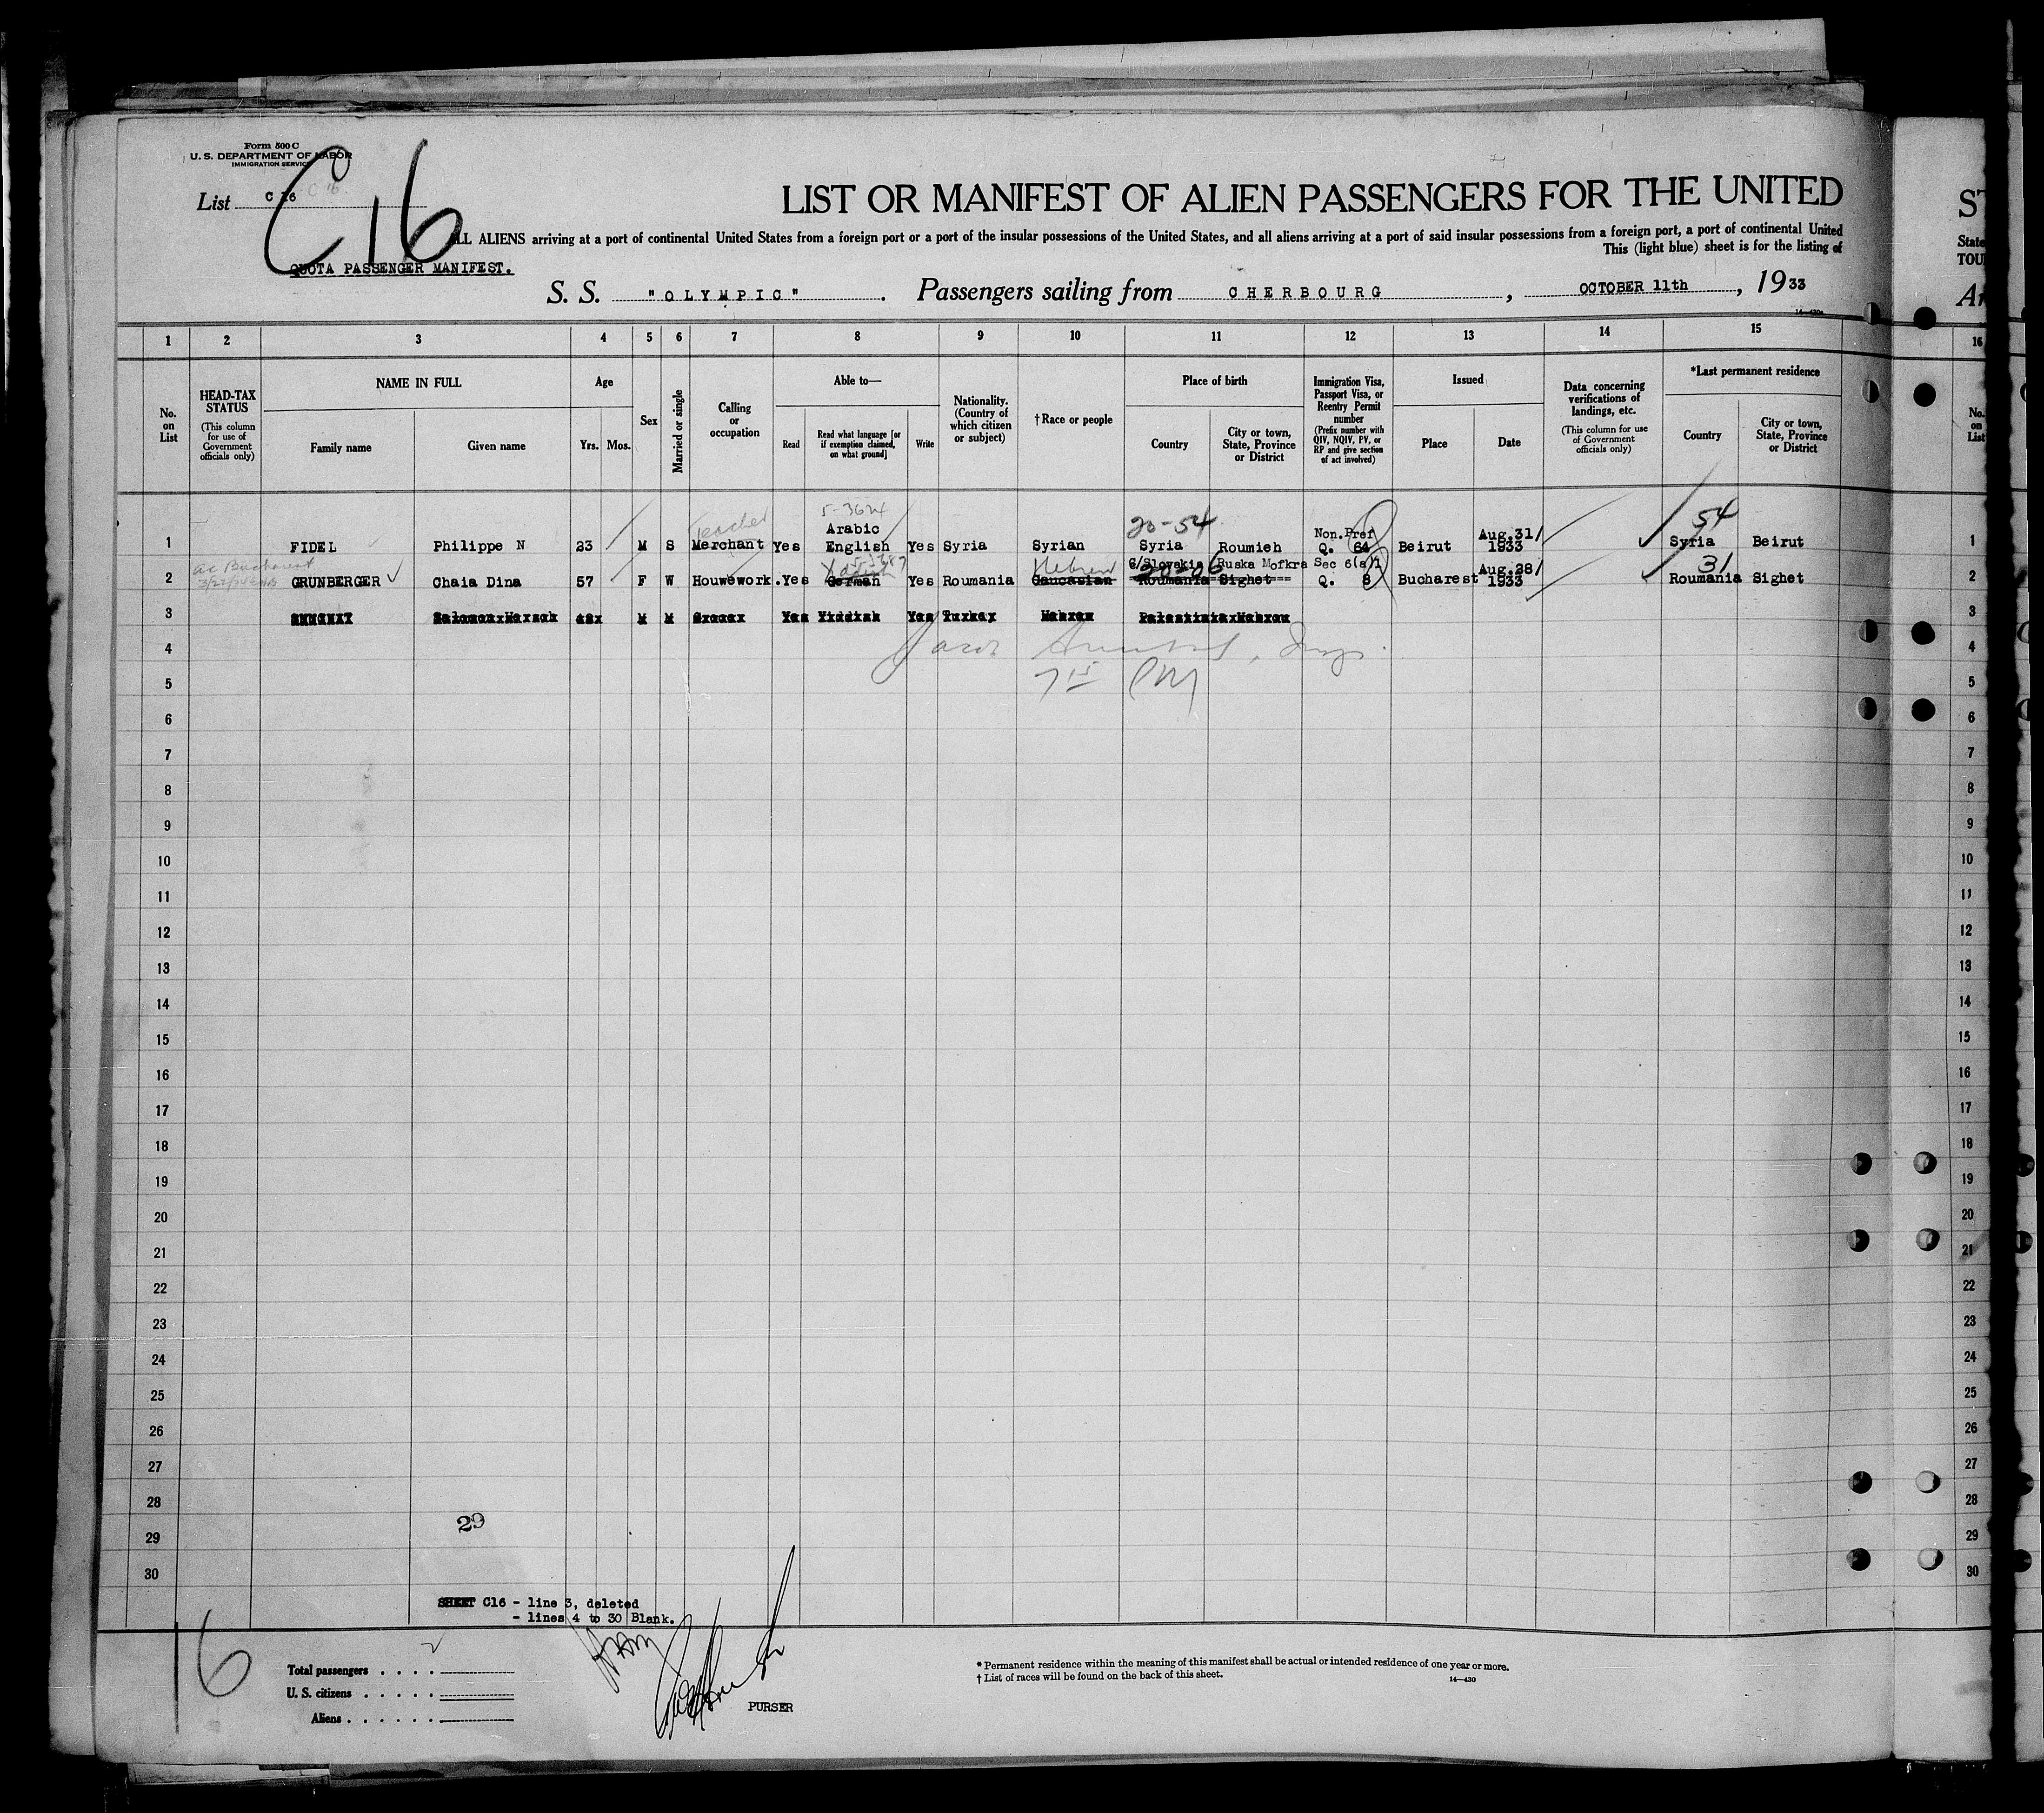 Form 500 C
U. S. DEPARTMENT OF LABOR
IMMIGRATION SERVICE
List C 16 C 16
C 16
LIST OR MANIFEST OF ALIEN PASSENGERS FOR THE UNITED
ALL ALIENS arriving at a port of continental United States from a foreign port or a port of the insular possessions of the United States, and all aliens arriving at a port of said insular possessions from a foreign port, a port of continental United
This (light blue) sheet is for the listing of
QUOTA PASSENGER MANIFEST.
S. S. "OLYMPIC". Passengers sailing from CHERBOURG, OCTOBER 11th, 1933
ST
State
TOU
1 2 3 4 5 6 7 8 9 10 11 12 13 14 15 16
No. on List
HEAD-TAX STATUS (This column for use of Government officials only)
NAME IN FULL
Family name
Given name
Age
Yrs. Mos.
Sex
Married or single
Calling or occupation
Able to—
Read
Read what language [or if exemption claimed, on what ground]
Write
Nationality. (Country of which citizen or subject)
†Race or people
Place of birth
Country
City or town, State, Province or District
Immigration Visa, Passport Visa, or Reentry Permit number (Prefix number with QIV, NQIV, PV, or RP and give section of act involved)
Issued
Place
Date
Data concerning verifications of landings, etc. (This column for use of Government officials only)
*Last permanent residence
Country
City or town, State, Province or District
No. on List
Teacher 5-3624 20-54 54
Arabic Non.Pref Aug.31/
1 FIDEL Philippe N 23 M S Merchant Yes English Yes Syria Syrian Syria Roumieh Q. 64 Beirut 1933 Syria Beirut 1
Hebrew C/Slovakia Ruska Mofkra Sec 6(a)1 Aug.28/ 31
20-06
2 GRUNBERGER Chaia Dina 57 F W Houwework. Yes German Yes Roumania Caucasian Roumania Sighet Q. 8 Bucharest 1933 Roumania Sighet 2
3 M M Yes Yiddish Yes 3
4 4
7 15 PM
5 5
6 6
7 7
8 8
9 9
10 10
11 11
12 12
13 13
14 14
15 15
16 16
17 17
18 18
19 19
20 20
21 21
22 22
23 23
24 24
25 25
26 26
27 27
28 28
29
29 29
30 30
SHEET C16 - line 3, deleted
- lines 4 to 30 Blank.
16
Total passengers . . . . 2
U. S. citizens . . . . .
Aliens . . . . . .
PURSER
* Permanent residence within the meaning of this manifest shall be actual or intended residence of one year or more.
† List of races will be found on the back of this sheet.
14—430